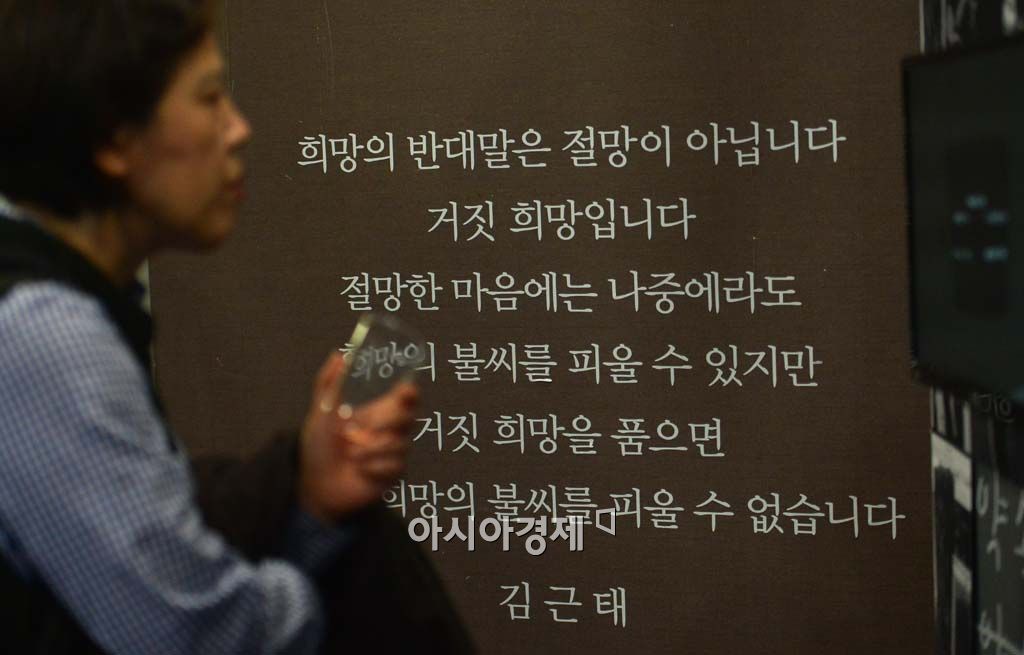 희망의 반대말은 절망이 아닙니다
거짓 희망입니다
절망한 마음에는 나중에라도
희망의 불씨를 피울 수 있지만
거짓 희망을 품으면
희망의 불씨를 피울 수 없습니다
아시아경제
김근태